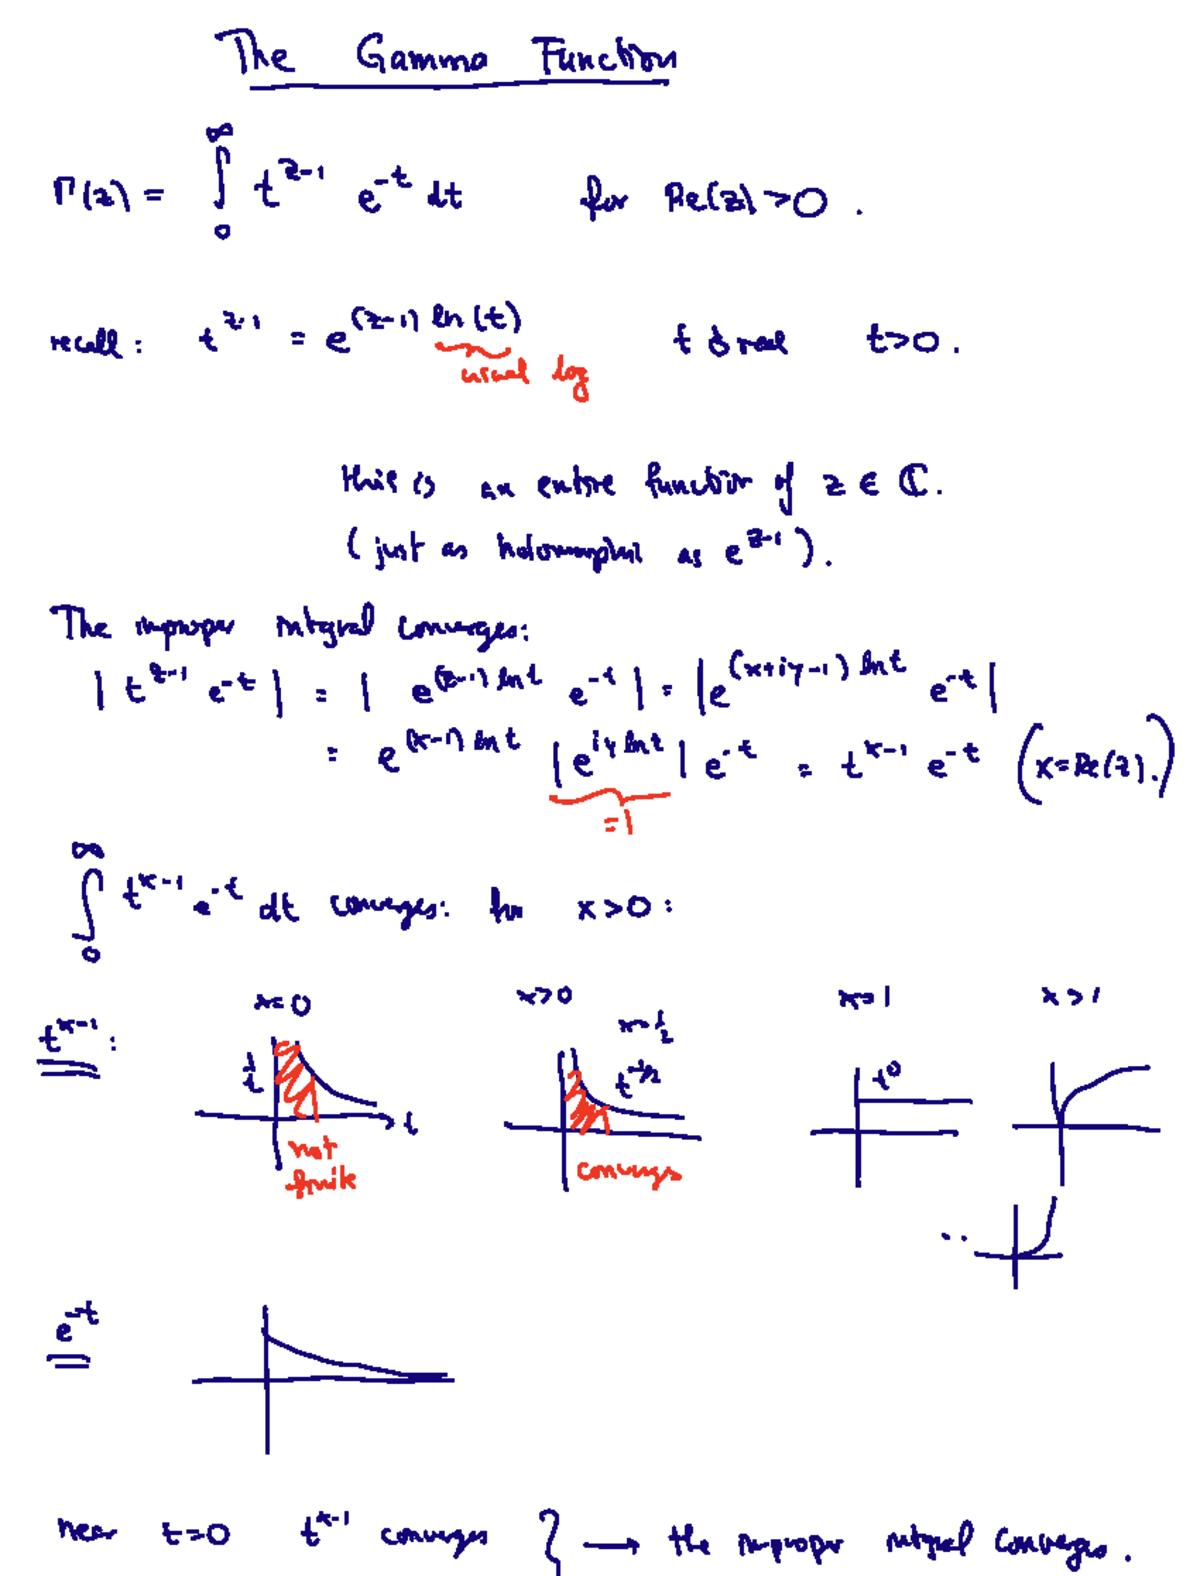 The Gamma Function
Γ(z) = ∫₀^∞ t^{z-1} e^{-t} dt for Re(z) > 0 .
recall: t^{z-1} = e^{(z-1) ln(t)} t is real t>0 .
usual log
this is an entire function of z ∈ ℂ.
(just as holomorphic as e^{z-1}).
The improper integral converges:
| t^{z-1} e^{-t} | = | e^{(z-1) ln t} e^{-t} | = | e^{(x+iy-1) ln t} e^{-t} |
= e^{(x-1) ln t} | e^{iy ln t} | e^{-t} = t^{x-1} e^{-t} (x = Re(z).)
=1
∫₀^∞ t^{x-1} e^{-t} dt converges: for x>0 :
x=0 x>0 x=1 x>1
t^{x-1} : x=1/2
1/t t^{-1/2} t^0
t
not finite converges
..
e^{-t}
near t=0 t^{x-1} converges } → the improper integral converges .